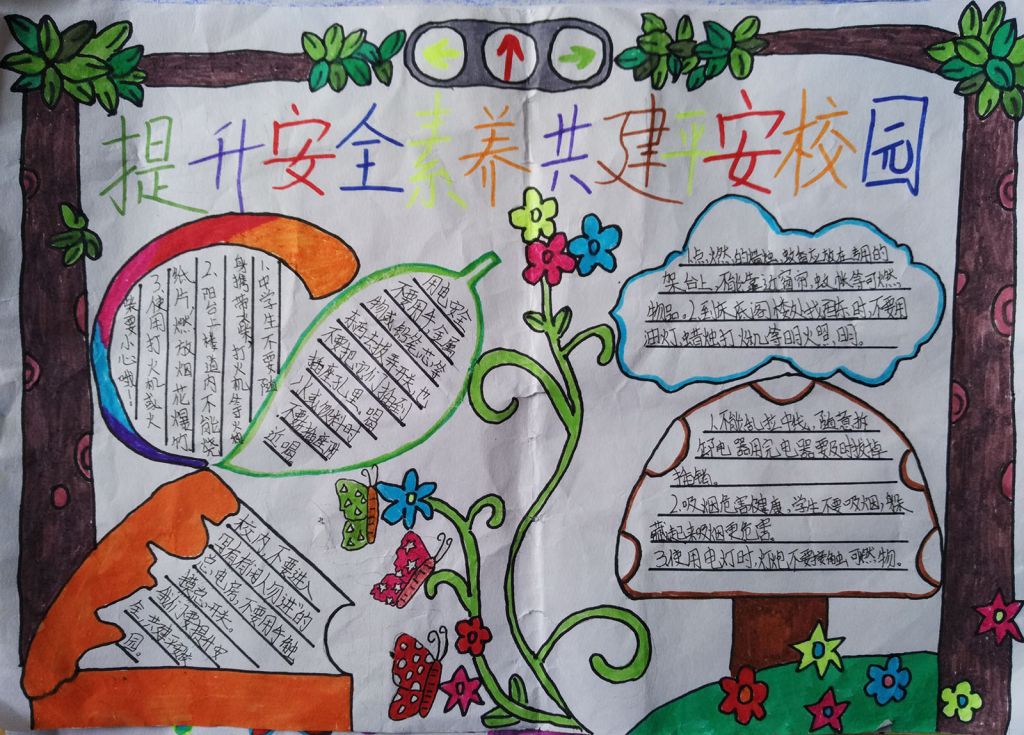 提升安全素养共建平安校园
1.中学生不要随
身携带火柴、打火机等火种
2、阳台上楼道内不能烧
纸片、燃放烟花爆竹
3、使用打火机或火
柴要小心哦!
用电安全
不要用手、金属
物或铅笔芯等
东西去拨弄开关,也
不要把它们插到
插座孔里。喝
水或饮料时
不要在插座附
近喝
1.点燃的蜡烛、蚊香应放在专用的
架台上,不能靠近窗帘、蚊帐等可燃
物品。2.到床底、阁楼处找东西时,不要用
油灯、蜡烛、打火机等明火照明。
1.不能乱拉电线,随意拆
卸电器用完电器要及时拔掉
插销。
2.吸烟危害健康,学生不要吸烟,躲
藏起来吸烟更危害。
3.使用电灯时,灯泡不要接触可燃物。
校内,不要进入
写有“闲人勿进”的
总电房,不要用手触
摸总开关。
我们要提升安
全,共建平安校
园。